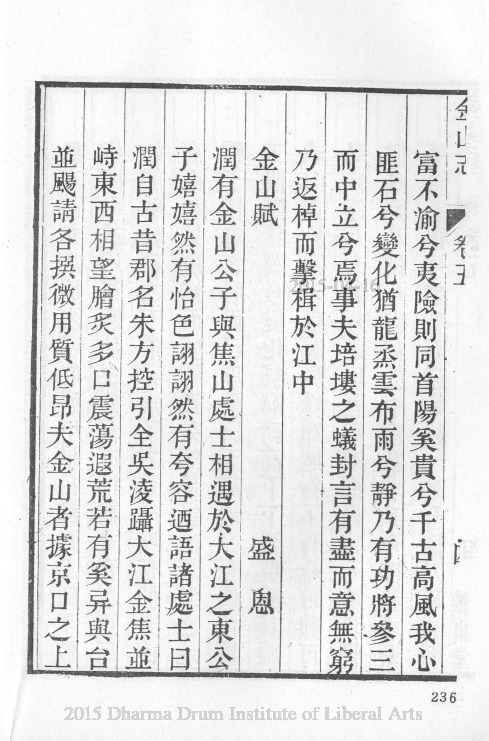 金山志 卷五
富不渝兮夷險則同首陽奚貴兮千古高風我心
匪石兮變化猶龍烝雲布雨兮靜乃有功將參三
而中立兮焉事夫培塿之蟻封言有盡而意無窮
乃返棹而擊楫於江中
金山賦 盛恩
潤有金山公子與焦山處士相遇於大江之東公
子嬉嬉然有怡色詡詡然有夸容迺語諸處士曰
潤自古昔郡名朱方控引全吳淩躡大江金焦並
峙東西相望膾炙多口震蕩遐荒若有奚异與台
並颺請各撰微用質低昂夫金山者據京口之上
236
2015 Dharma Drum Institute of Liberal Arts